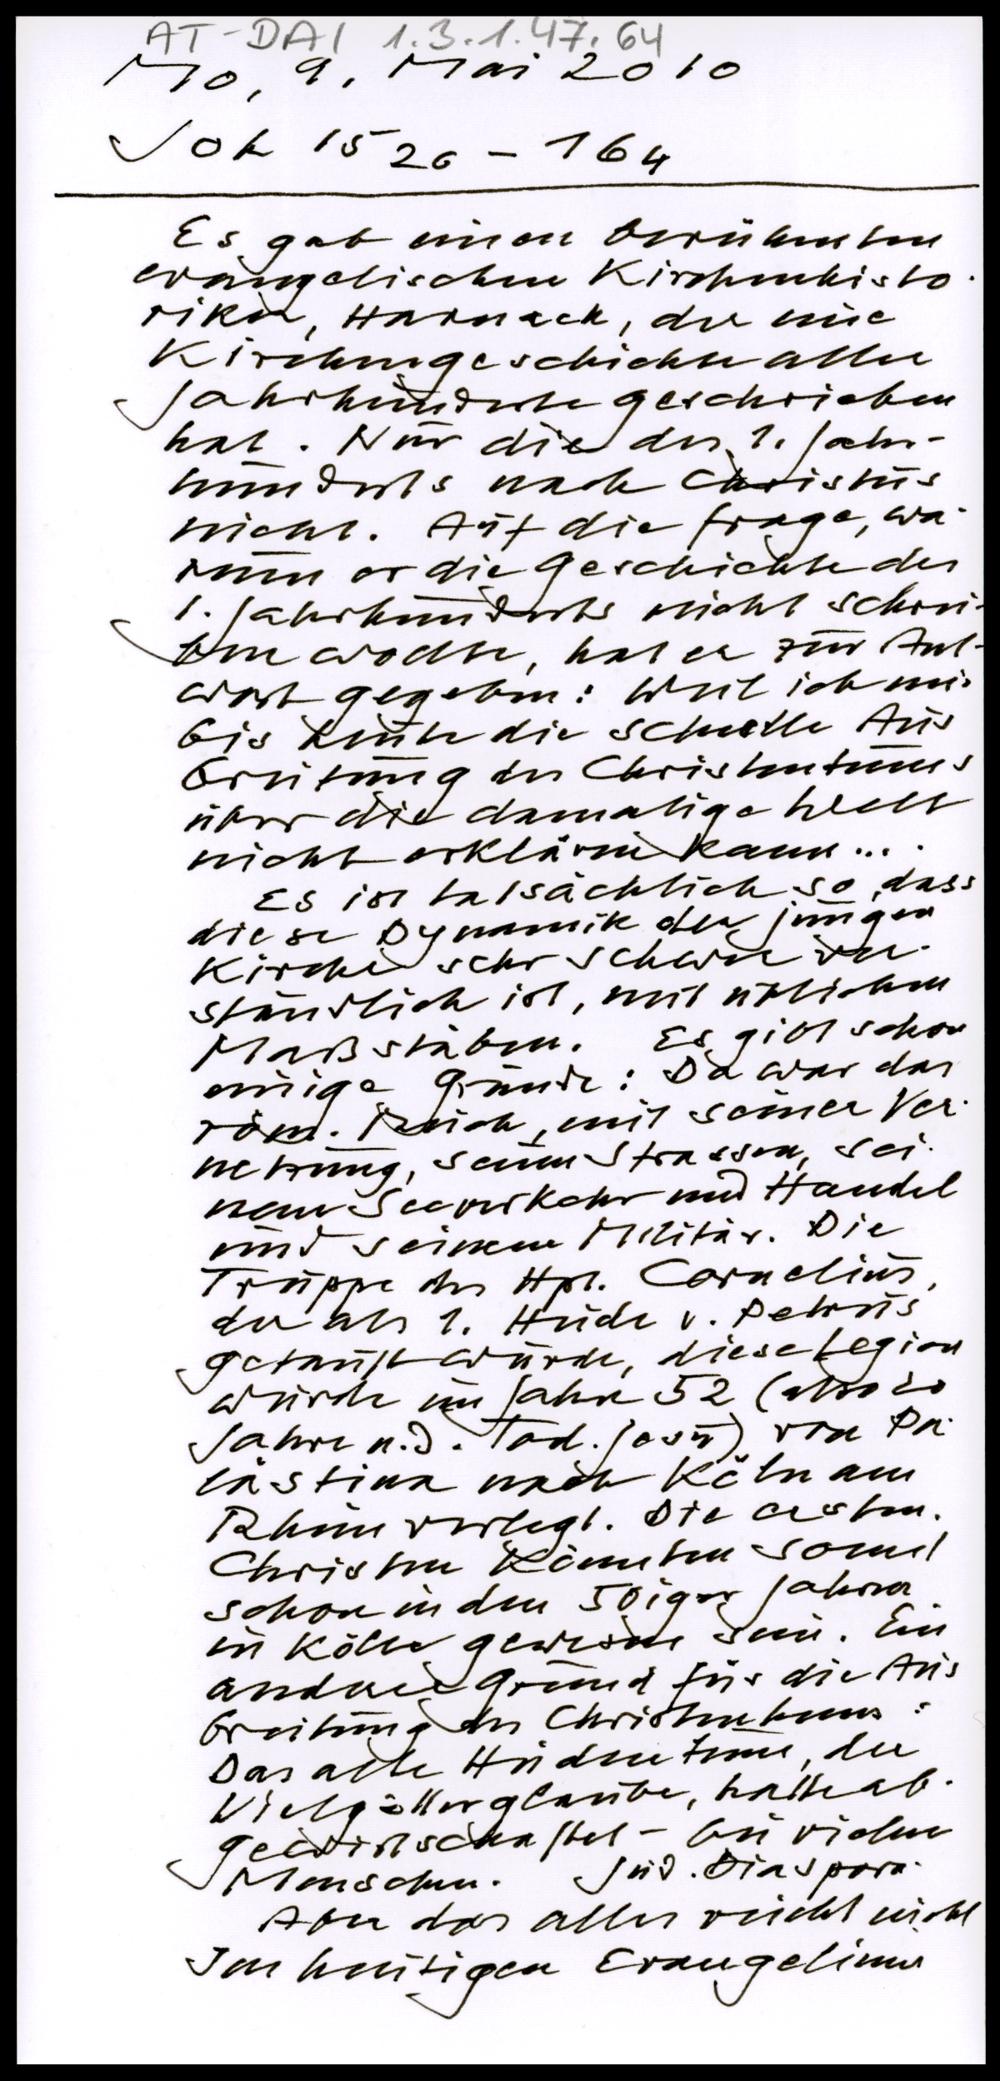 AT-DAI 1.3.1.47.64
Mo, 9. Mai 2010
Joh 15 26 - 16 4
Es gab einen berühmten
evangelischen Kirchenhisto-
riker, Harnack, der eine
Kirchengeschichte aller
Jahrhunderte geschrieben
hat. Nur die des 1. Jahr-
hunderts nach Christus
nicht. Auf die Frage, wa-
rum er die Geschichte des
1. Jahrhunderts nicht schrei-
ben wollte, hat er zur Ant-
wort gegeben: Weil ich mir
bis heute die schnelle Aus
breitung des Christentums
über die damalige Welt
nicht erklären kann....
Es ist tatsächlich so, dass
diese Dynamik der jungen
Kirche sehr schwer ver-
ständlich ist, mit üblichen
Maßstäben. Es gibt schon
einige Gründe: Da war das
röm. Reich, mit seiner Ver-
netzung, seinen Strassen, sei-
nem Seeverkehr und Handel
und seinem Militär. Die
Truppe des Hpt. Cornelius,
der als 1. Heide v. Petrus
getauft wurde, diese Legion
wurde im Jahre 52 (also 20
Jahre n. d. Tod. Jesu) von Pa-
lästina nach Köln am
Rhein verlegt. Die ersten
Christen könnten somit
schon in den 50iger Jahren
in Köln gewesen sein. Ein
anderer Grund für die Aus
breitung des Christentums:
Das alte Heidentum, der
Vielgötterglaube, hatte ab-
gewirtschaftet - bei vielen
Menschen. Jüd. Diaspora.
Aber das alles reicht nicht
Im heutigen Evangelium